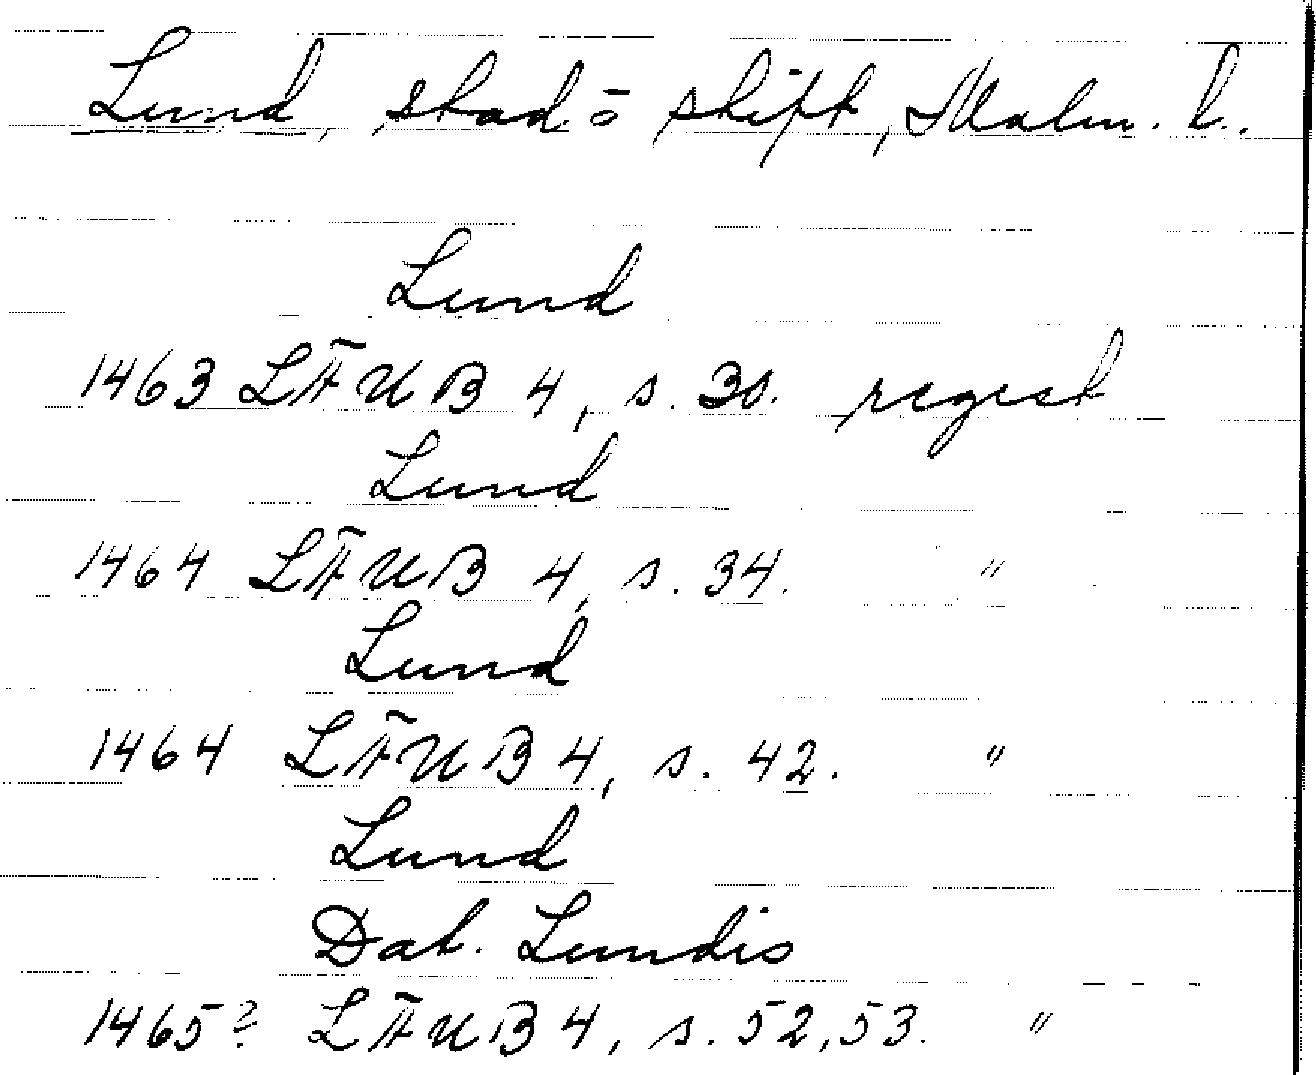 Lund, stad o stift, Malm. l.
Lund
1463 LÄUB 4, s. 30. regest
Lund
1464 LÄUB 4, s. 34. "
Lund
1464 LÄUB 4, s. 42. "
Lund
Dat. Lundis
1465? LÄUB 4, s. 52, 53. "